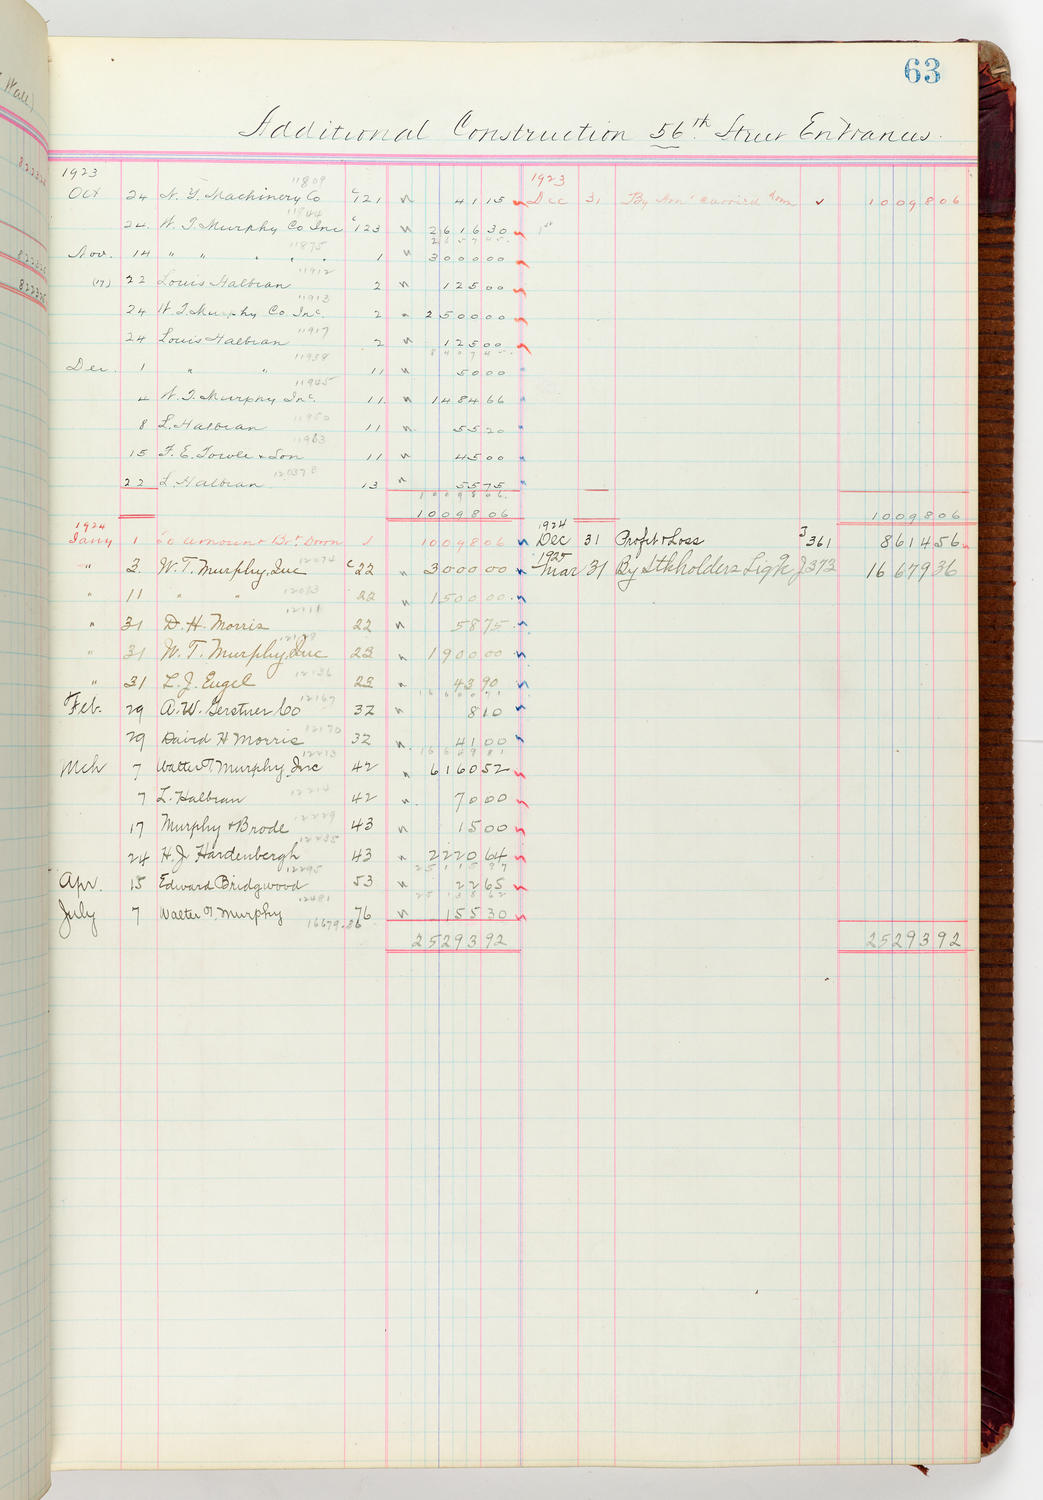 63
Additional Construction 56th Street Entrances.
1923
Oct 24 N. Y. Machinery Co 11809 C121 41 15
24. W. T. Murphy Co Inc 11844 C123 2616 30
2657 45
Nov. 14 " " " " " 11875 1 3000 00
(17) 22 Louis Halbian 11912 2 125 00
24 W. T. Murphy Co. Inc. 11913 2 2500 00
24 Louis Halbian 11917 2 125 00
8407 45
Dec. 1 " " 11938 11 50 00
4 W. T. Murphy Inc. 11945 11. 1484 66
8 L. Halbian 11950 11 55 20
15 F. E. Towle & Son 11963 11 45 00
22 L. Halbian 12037 13 55 75
10098 06
10098 06
1923
Dec 31 By Amt carried down 10098 06
10098 06
1924
Jany 1 To amount Brt Down 10098 06
" 3. W. T. Murphy, Inc 12074 C22 3000 00
" 11 " " 12083 22 1500 00
" 31 D. H. Morris 22 58 75
" 31 W. T. Murphy, Inc 23 1900 00
" 31 L. J. Engel 12136 23 43 90
16600 71
Feb. 29 A. W. Gerstner Co 12167 32 8 10
29 David H Morris 12170 32 41 00
16649 81
Mch 7 Walter T. Murphy, Inc 12213 42 6160 52
7 L. Halbian 12214 42 70 00
17 Murphy & Brode 12229 43 15 00
24 H. J. Hardenbergh 12235 43 2220 64
25115 97
Apr. 15 Edward Bridgwood 12295 53 22 65
25138 62
July 7 Walter T. Murphy 12481 76 155 30
16679.36
25293 92
1924
Dec 31 Profit & Loss J361 8614 56
1925
Mar 31 By Stkholders Liq'g J373 16679 36
25293 92